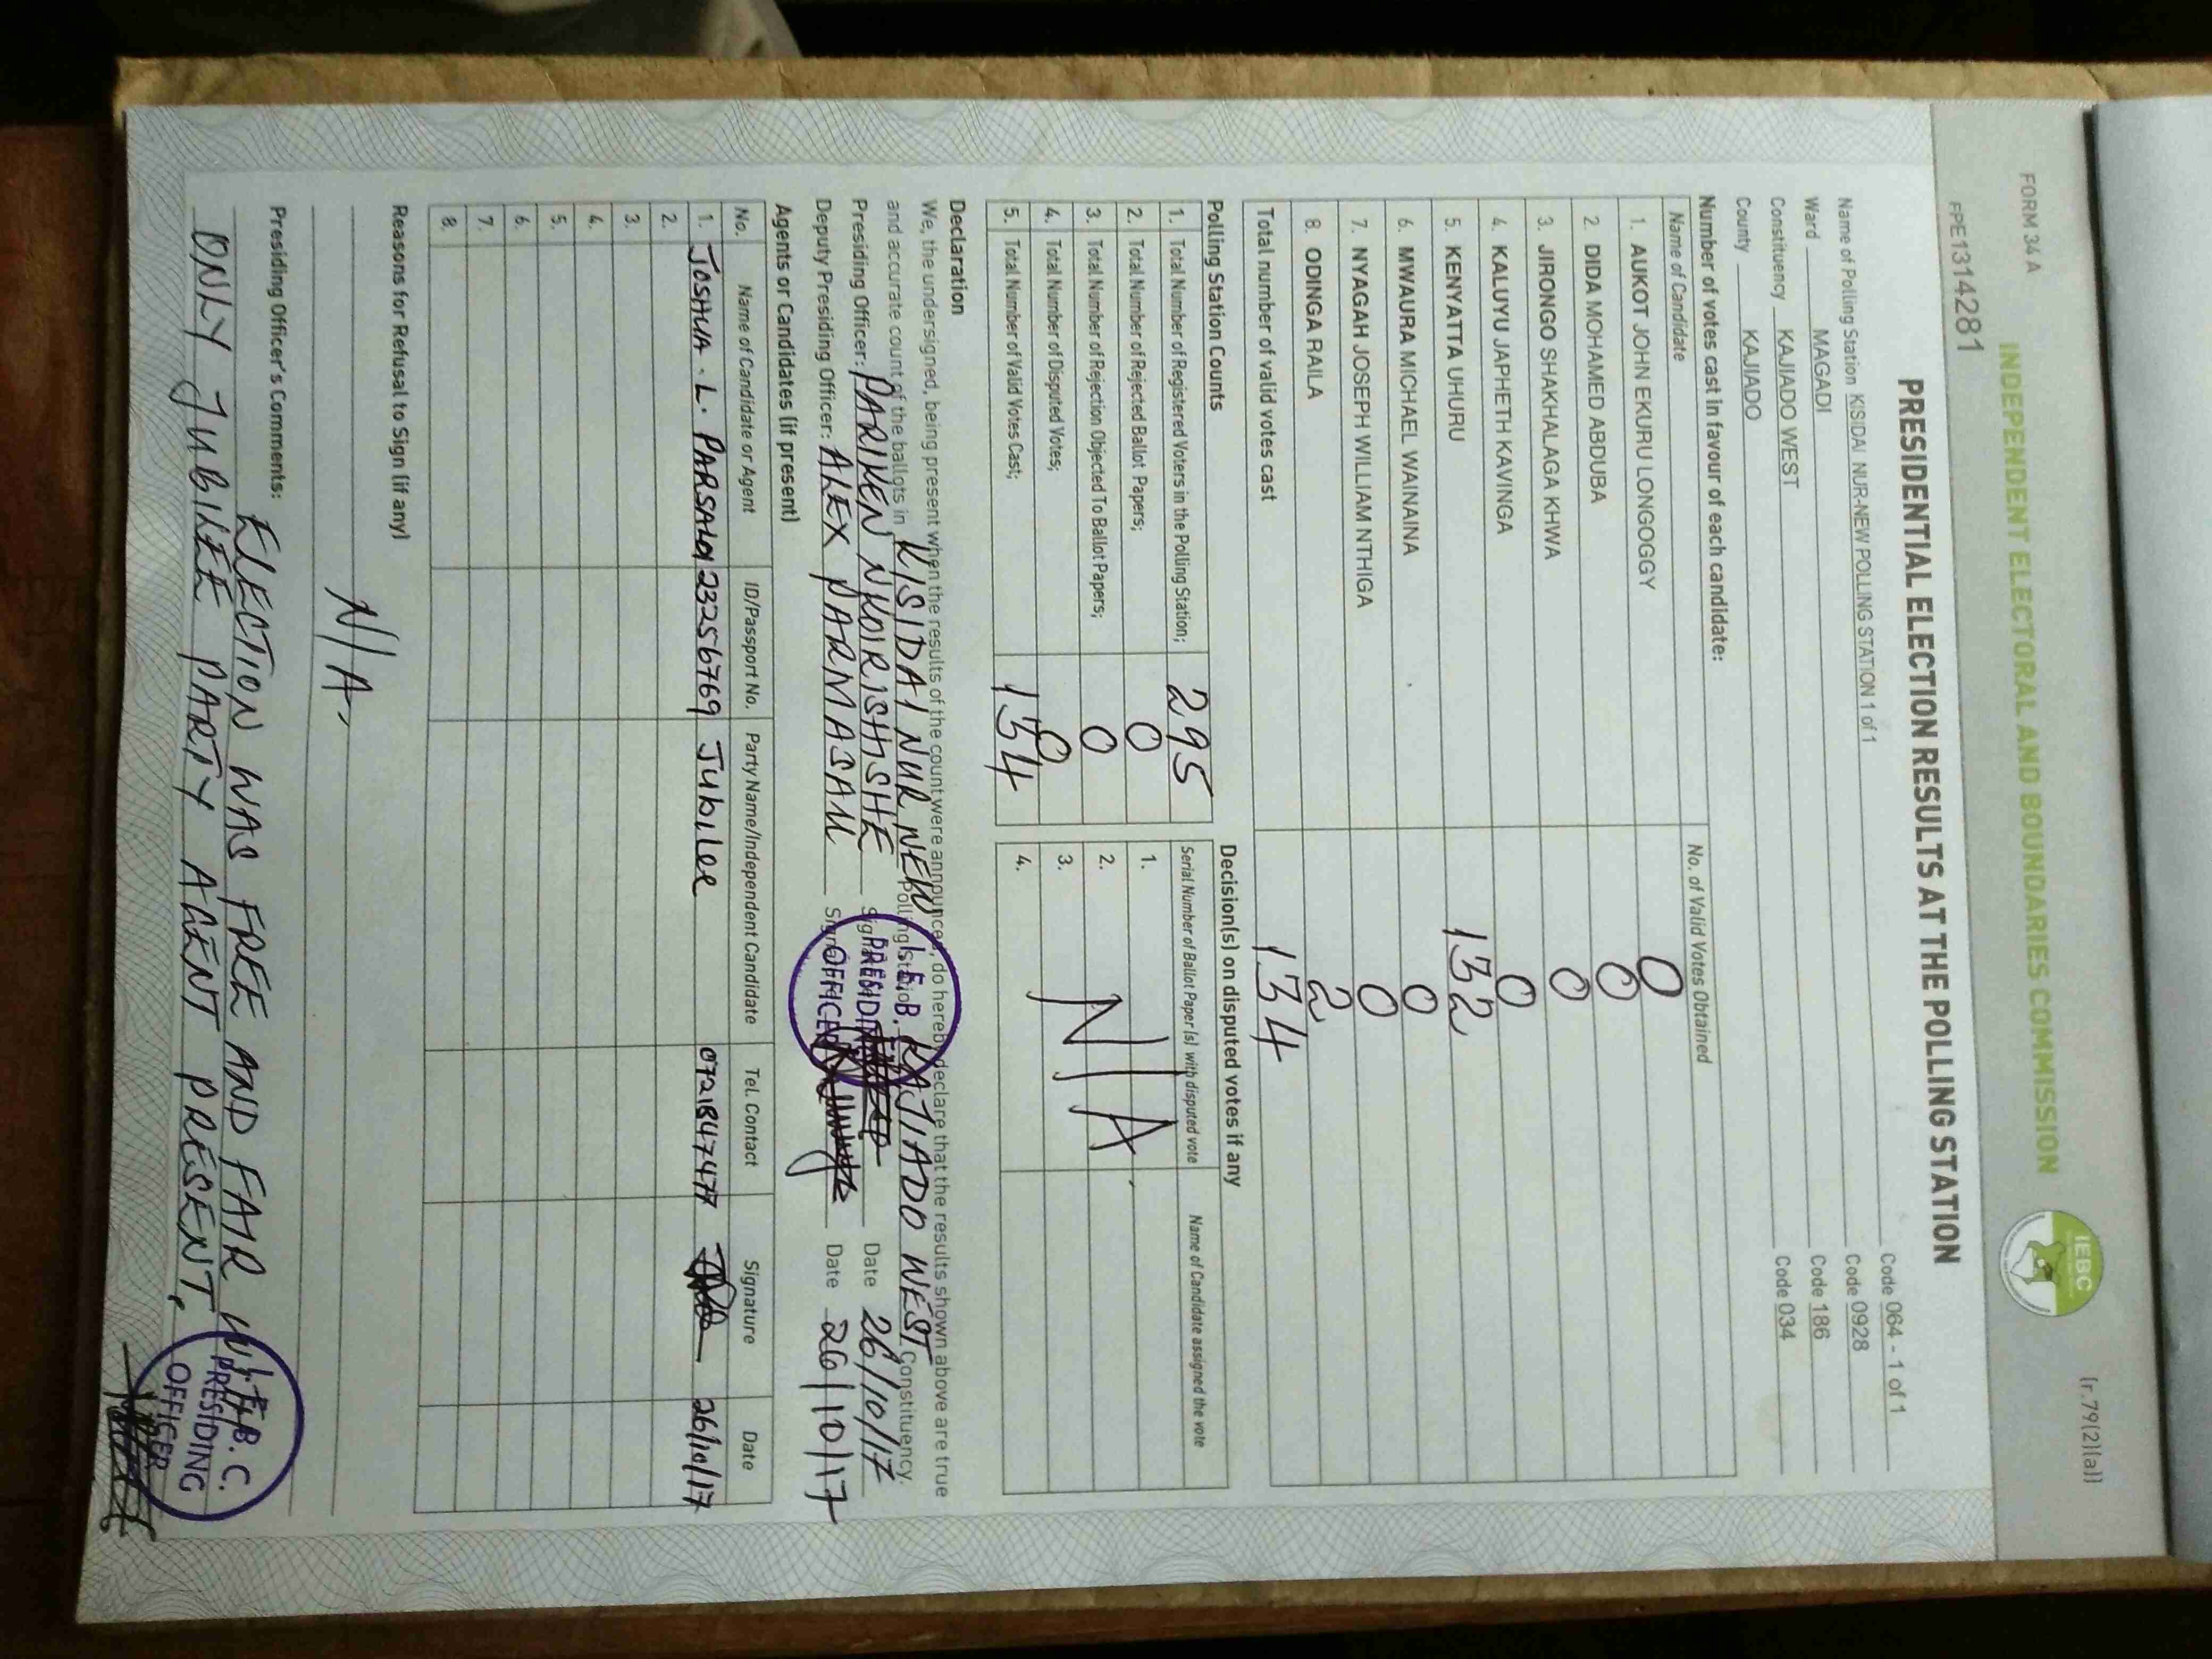 FORM 34 A
(r.79(2)(a))
INDEPENDENT ELECTORAL AND BOUNDARIES COMMISSION
IEBC
FPE1314281
PRESIDENTIAL ELECTION RESULTS AT THE POLLING STATION
Name of Polling Station KISIDAI NUR-NEW POLLING STATION 1 of 1 Code 064 - 1 of 1
Ward MAGADI Code 0928
Constituency KAJIADO WEST Code 186
County KAJIADO Code 034
Number of votes cast in favour of each candidate:
Name of Candidate No. of Valid Votes Obtained
1. AUKOT JOHN EKURU LONGOGGY 0
2. DIDA MOHAMED ABDUBA 0
3. JIRONGO SHAKHALAGA KHWA 0
4. KALUYU JAPHETH KAVINGA 0
5. KENYATTA UHURU 132
6. MWAURA MICHAEL WAINAINA 0
7. NYAGAH JOSEPH WILLIAM NTHIGA 0
8. ODINGA RAILA 2
Total number of valid votes cast 134
Polling Station Counts
1. Total Number of Registered Voters in the Polling Station; 295
2. Total Number of Rejected Ballot Papers; 0
3. Total Number of Rejection Objected To Ballot Papers; 0
4. Total Number of Disputed Votes; 0
5. Total Number of Valid Votes Cast; 134
Decision(s) on disputed votes if any
Serial Number of Ballot Paper (s) with disputed vote Name of Candidate assigned the vote
1.
2. N/A
3.
4.
Declaration
We, the undersigned, being present when the results of the count were announced, do hereby declare that the results shown above are true
and accurate count of the ballots in KISIDAI NUR NEW Polling Station, KAJIADO WEST Constituency.
Presiding Officer: PARIKEN NKOIRISHISHE Date 26/10/17
Deputy Presiding Officer: ALEX PARMASAU Date 26/10/17
I.E.B.C.
PRESIDING
OFFICER
Agents or Candidates (if present)
No. Name of Candidate or Agent ID/Passport No. Party Name/Independent Candidate Tel. Contact Signature Date
1. JOSHUA. L. 23256769 Jubilee 0721847477 26/10/17
2.
3.
4.
5.
6.
7.
8.
Reasons for Refusal to Sign (if any)
N/A
Presiding Officer's Comments: ELECTION WAS FREE AND FAIR
ONLY JUBILEE PARTY AGENT PRESENT.
I.E.B.C.
PRESIDING
OFFICER